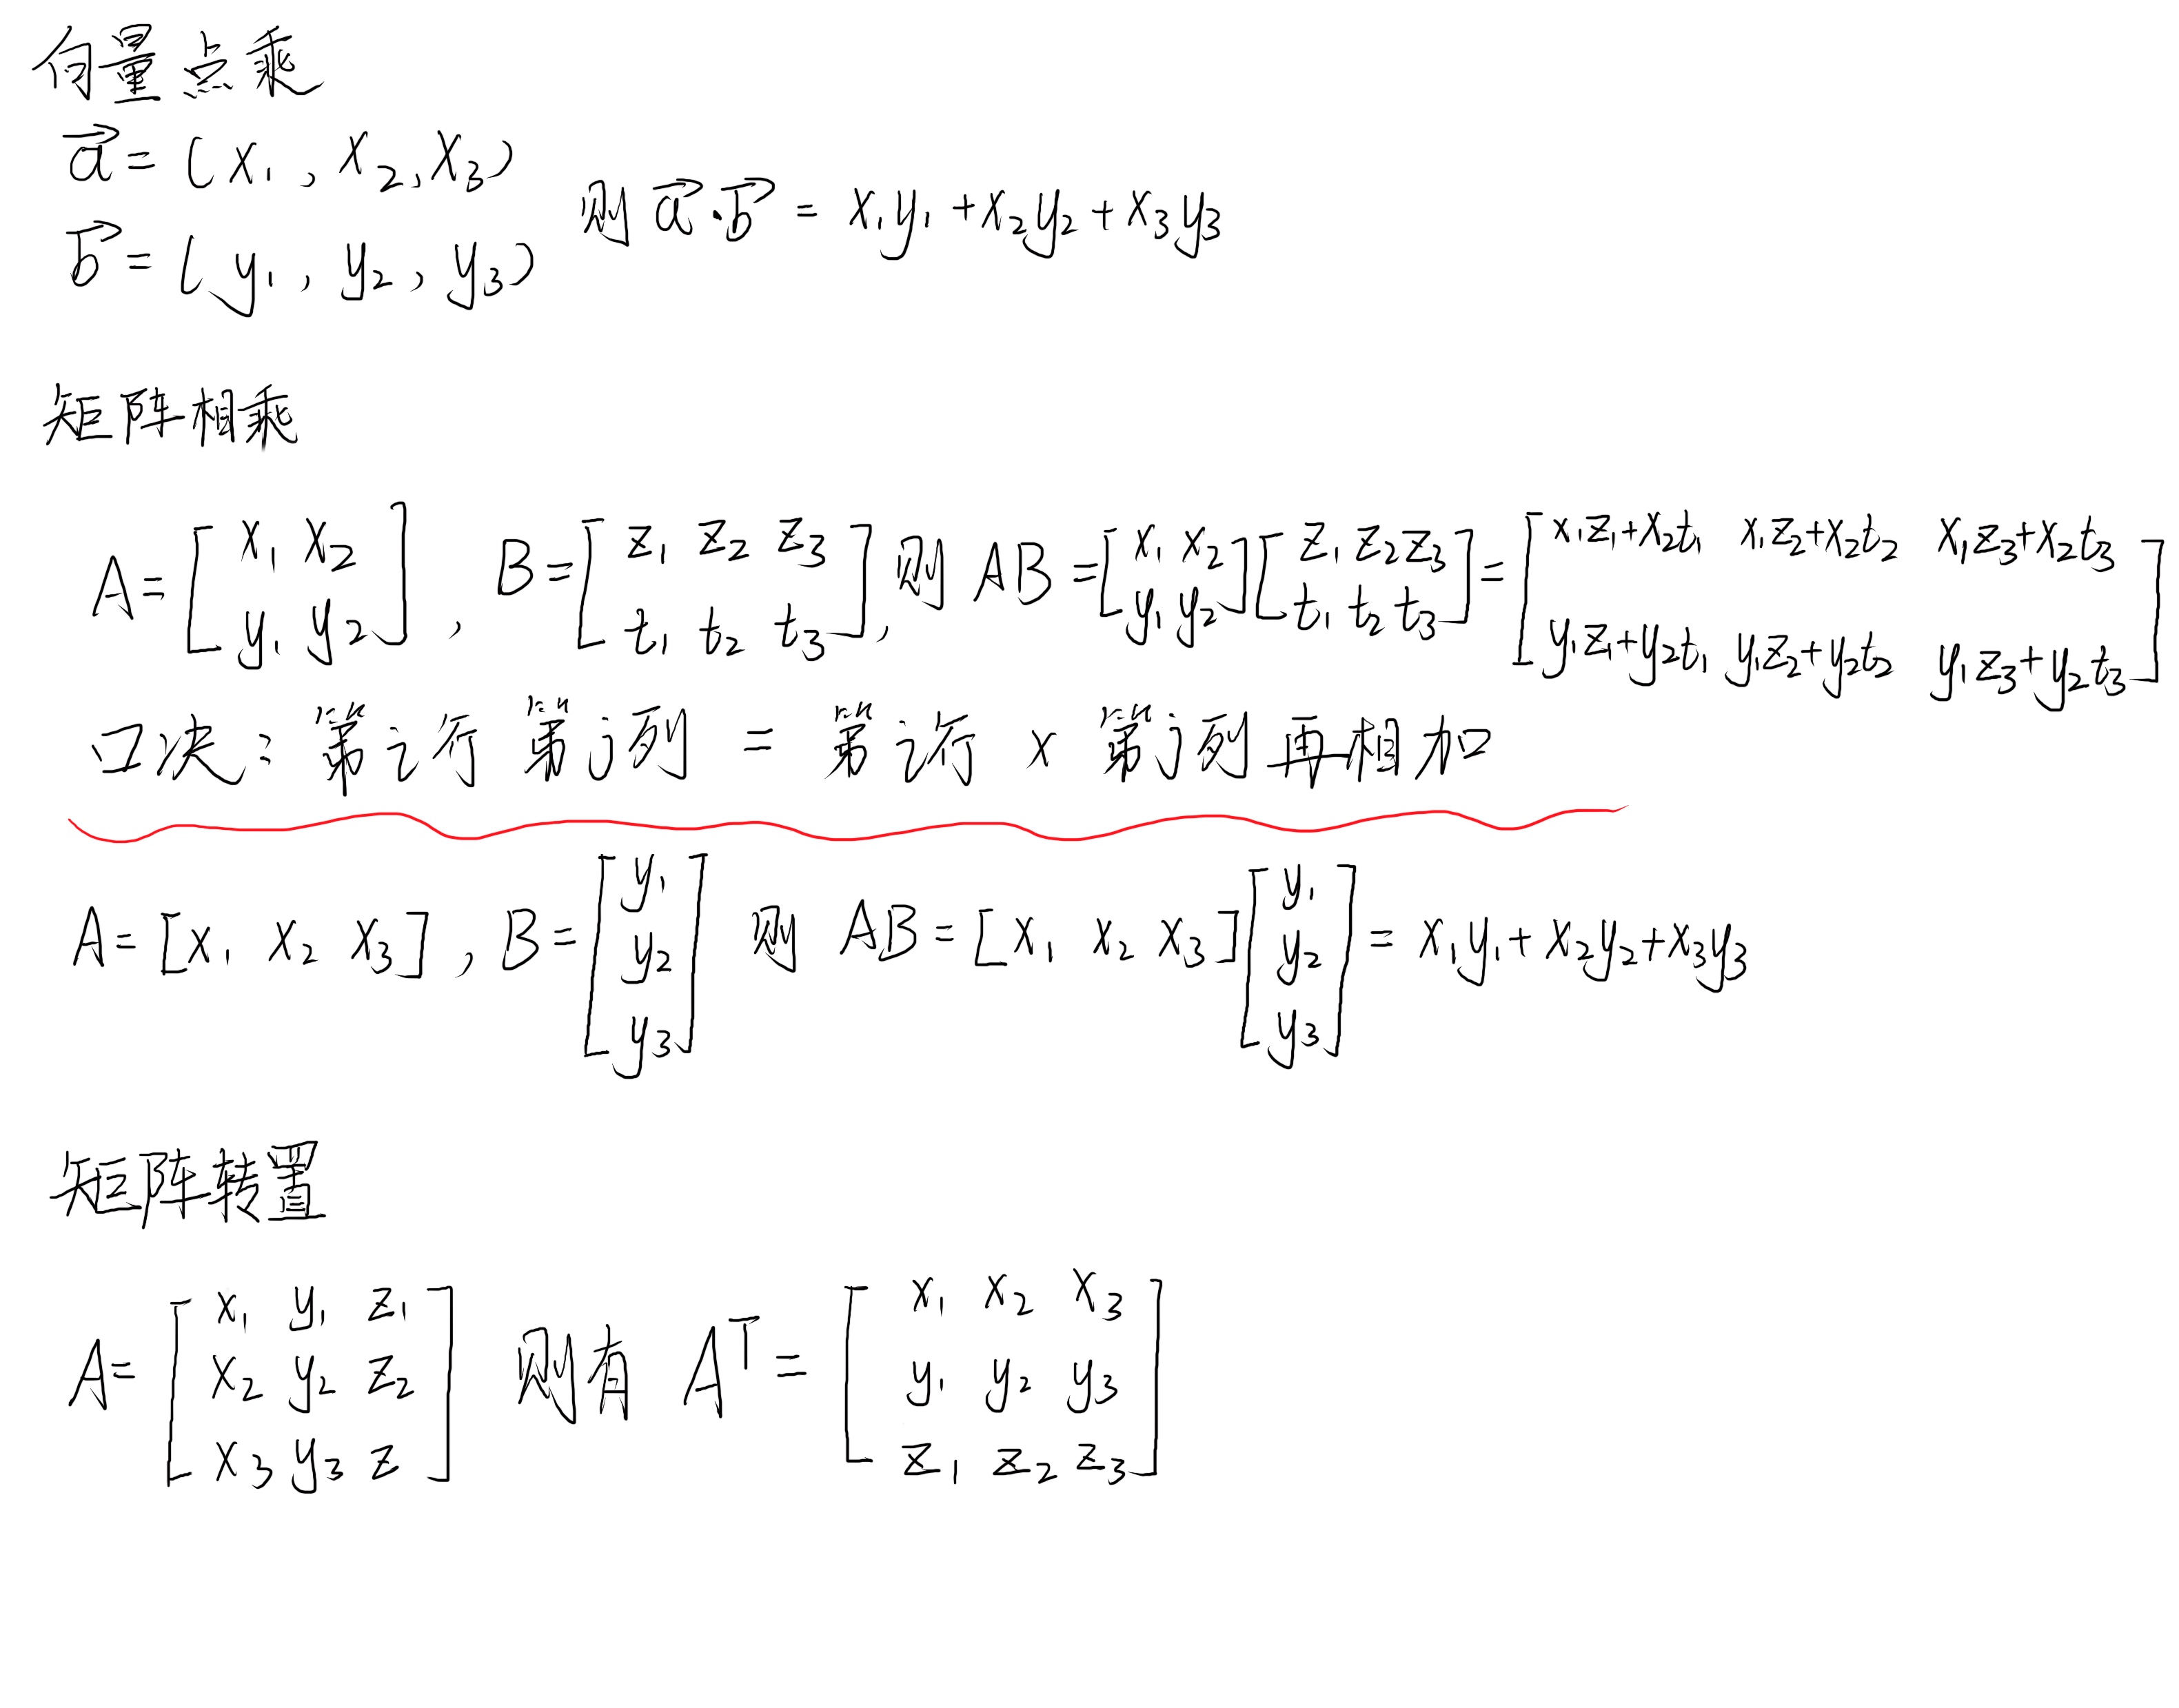 向量点乘
a⃗ = (x₁, x₂, x₃)
b⃗ = (y₁, y₂, y₃) 则 a⃗·b⃗ = x₁y₁ + x₂y₂ + x₃y₃
矩阵相乘
A = [x₁ x₂; y₁ y₂], B = [z₁ z₂ z₃; t₁ t₂ t₃], 则 AB = [x₁ x₂; y₁ y₂][z₁ z₂ z₃; t₁ t₂ t₃] = [x₁z₁+x₂t₁ x₁z₂+x₂t₂ x₁z₃+x₂t₃; y₁z₁+y₂t₁ y₁z₂+y₂t₂ y₁z₃+y₂t₃]
口决: 第i行 第j列 = 第i行 × 第j列 再相加
A = [x₁ x₂ x₃], B = [y₁; y₂; y₃] 则 AB = [x₁ x₂ x₃][y₁; y₂; y₃] = x₁y₁ + x₂y₂ + x₃y₃
矩阵转置
A = [x₁ y₁ z₁; x₂ y₂ z₂; x₃ y₃ z] 则有 Aᵀ = [x₁ x₂ x₃; y₁ y₂ y₃; z₁ z₂ z₃]